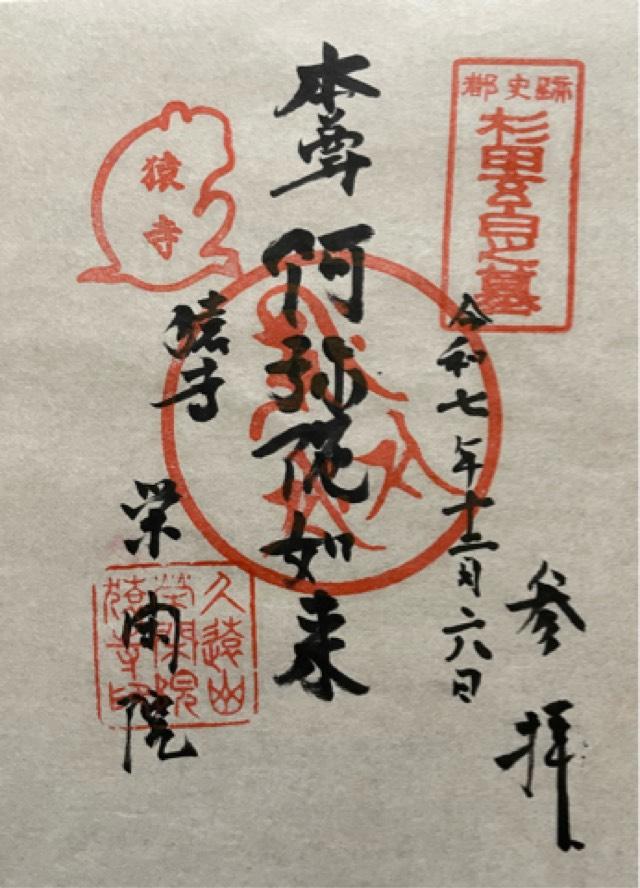 都史蹟
杉田玄白之墓
参拝
令和七年十二月六日
本尊 阿弥陀如来
猿寺
猿寺
栄閑院
久遠山
栄閑院
猿寺印